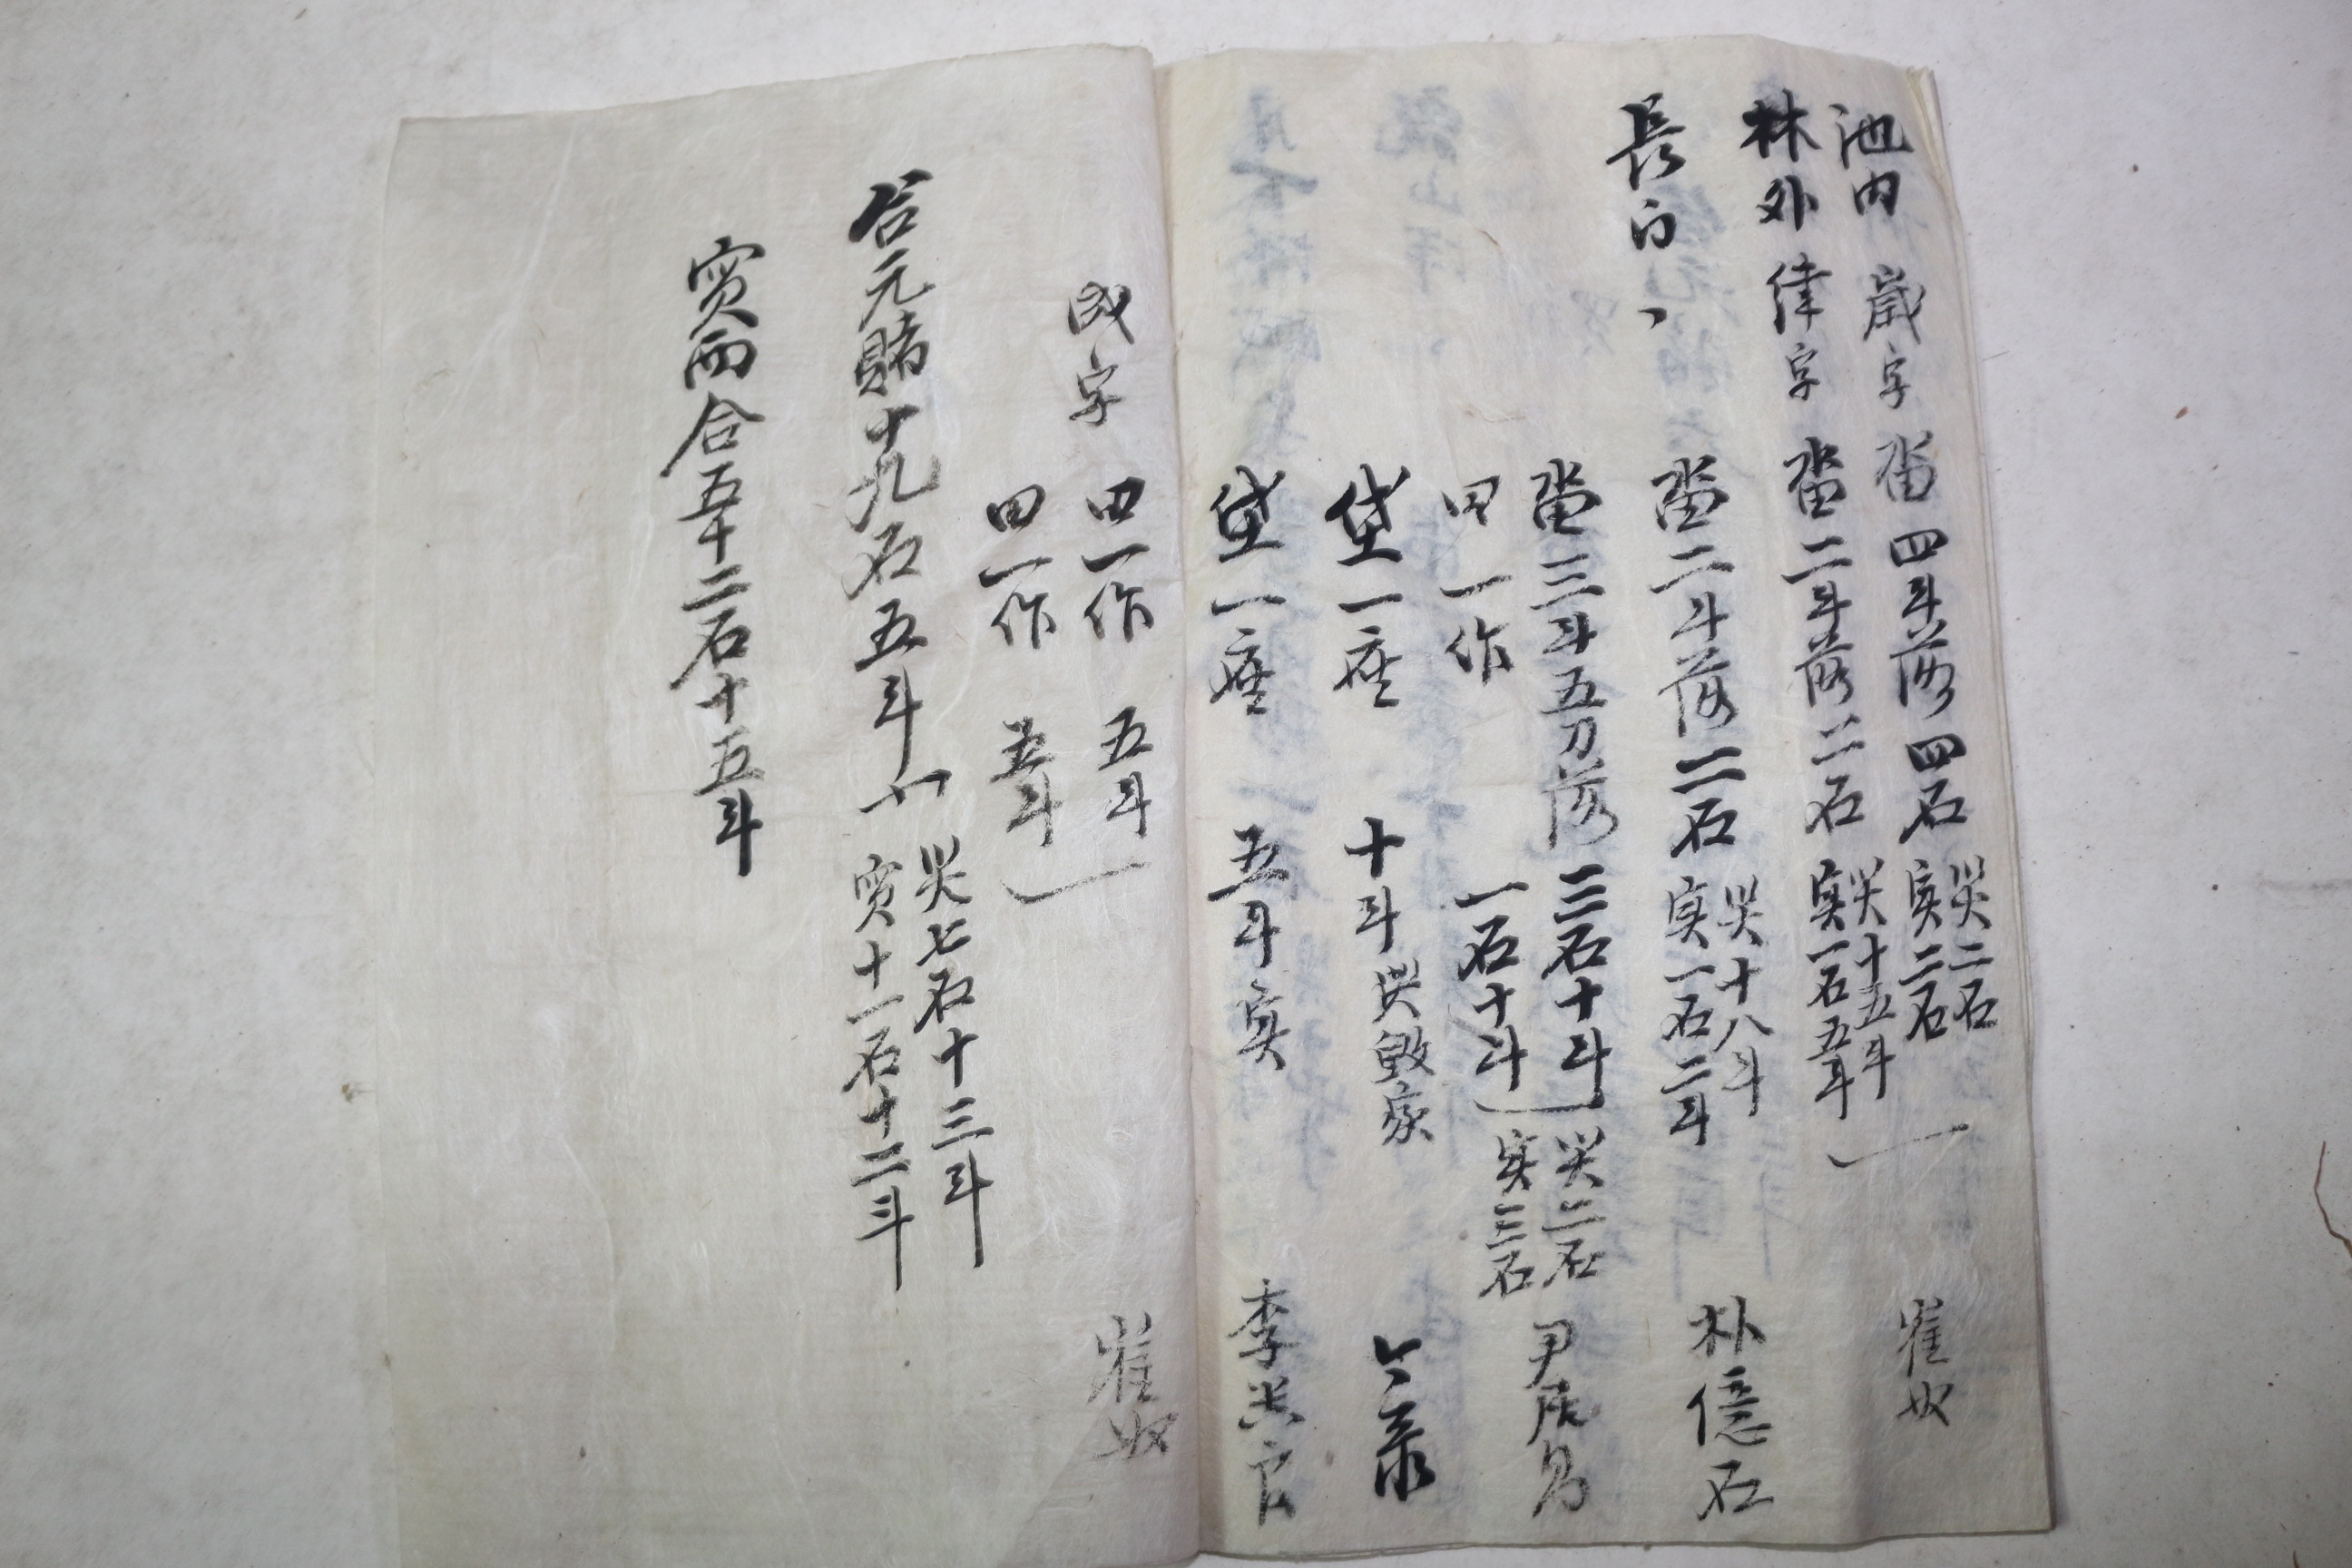 池內 歲字 畓 四斗落 四石 災二石 実二石 崔奴
林外 律字 畓 二斗落 二石 災十五斗 実一石五斗
長 畓二斗落 二石 災十八斗 実一石二斗 朴億石
畓三斗五刀落 三石十斗 災二石 実三石 尹
田一作 一石十斗
垈一座 十斗 災毀家
垈一座 五斗 実 李 官
成字 田一作 五斗 崔奴
田一作 五斗
合元賭十九石五斗 災七石十三斗
実十一石十二斗
実両合五十二石十五斗